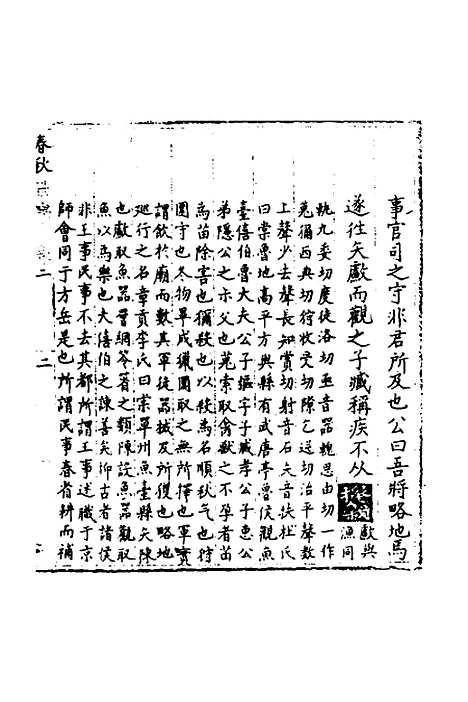 事官司之守非君所及也公曰吾將略地焉
遂往矢𩵋而觀之子臧稱疾不从
𩵋與
漁同
軌九委切度徒洛切亟音器輗思由切一作
蒐獮西典切狩收受切隙乞逆切治平聲數
上聲少去聲長知賞切射音石夫音扶杜氏
曰棠魯地高平方與縣有武唐亭魯侯觀魚
臺僖伯魯大夫公子彄字子臧孝公子惠公
弟隱公之尗父也蒐索取禽獸之不孕者苗
為苗除害也獮殺也以殺為名順秋气也狩
圍守也冬物畢成獵圍取之無所擇也軍實
謂飲於廟而數其軍徒器械及所獲也略地
廵行之名章貢李氏曰棠單州魚臺縣矢陳
也𩵋取魚器罾網笭箵之類陳設魚器觀取
魚以為樂也大僖伯之諫善矣抑古者諸侯
非王事民事不去其都所謂王事述職于京
師會同于方岳是也所謂民事春省耕而補
春秋
二
二